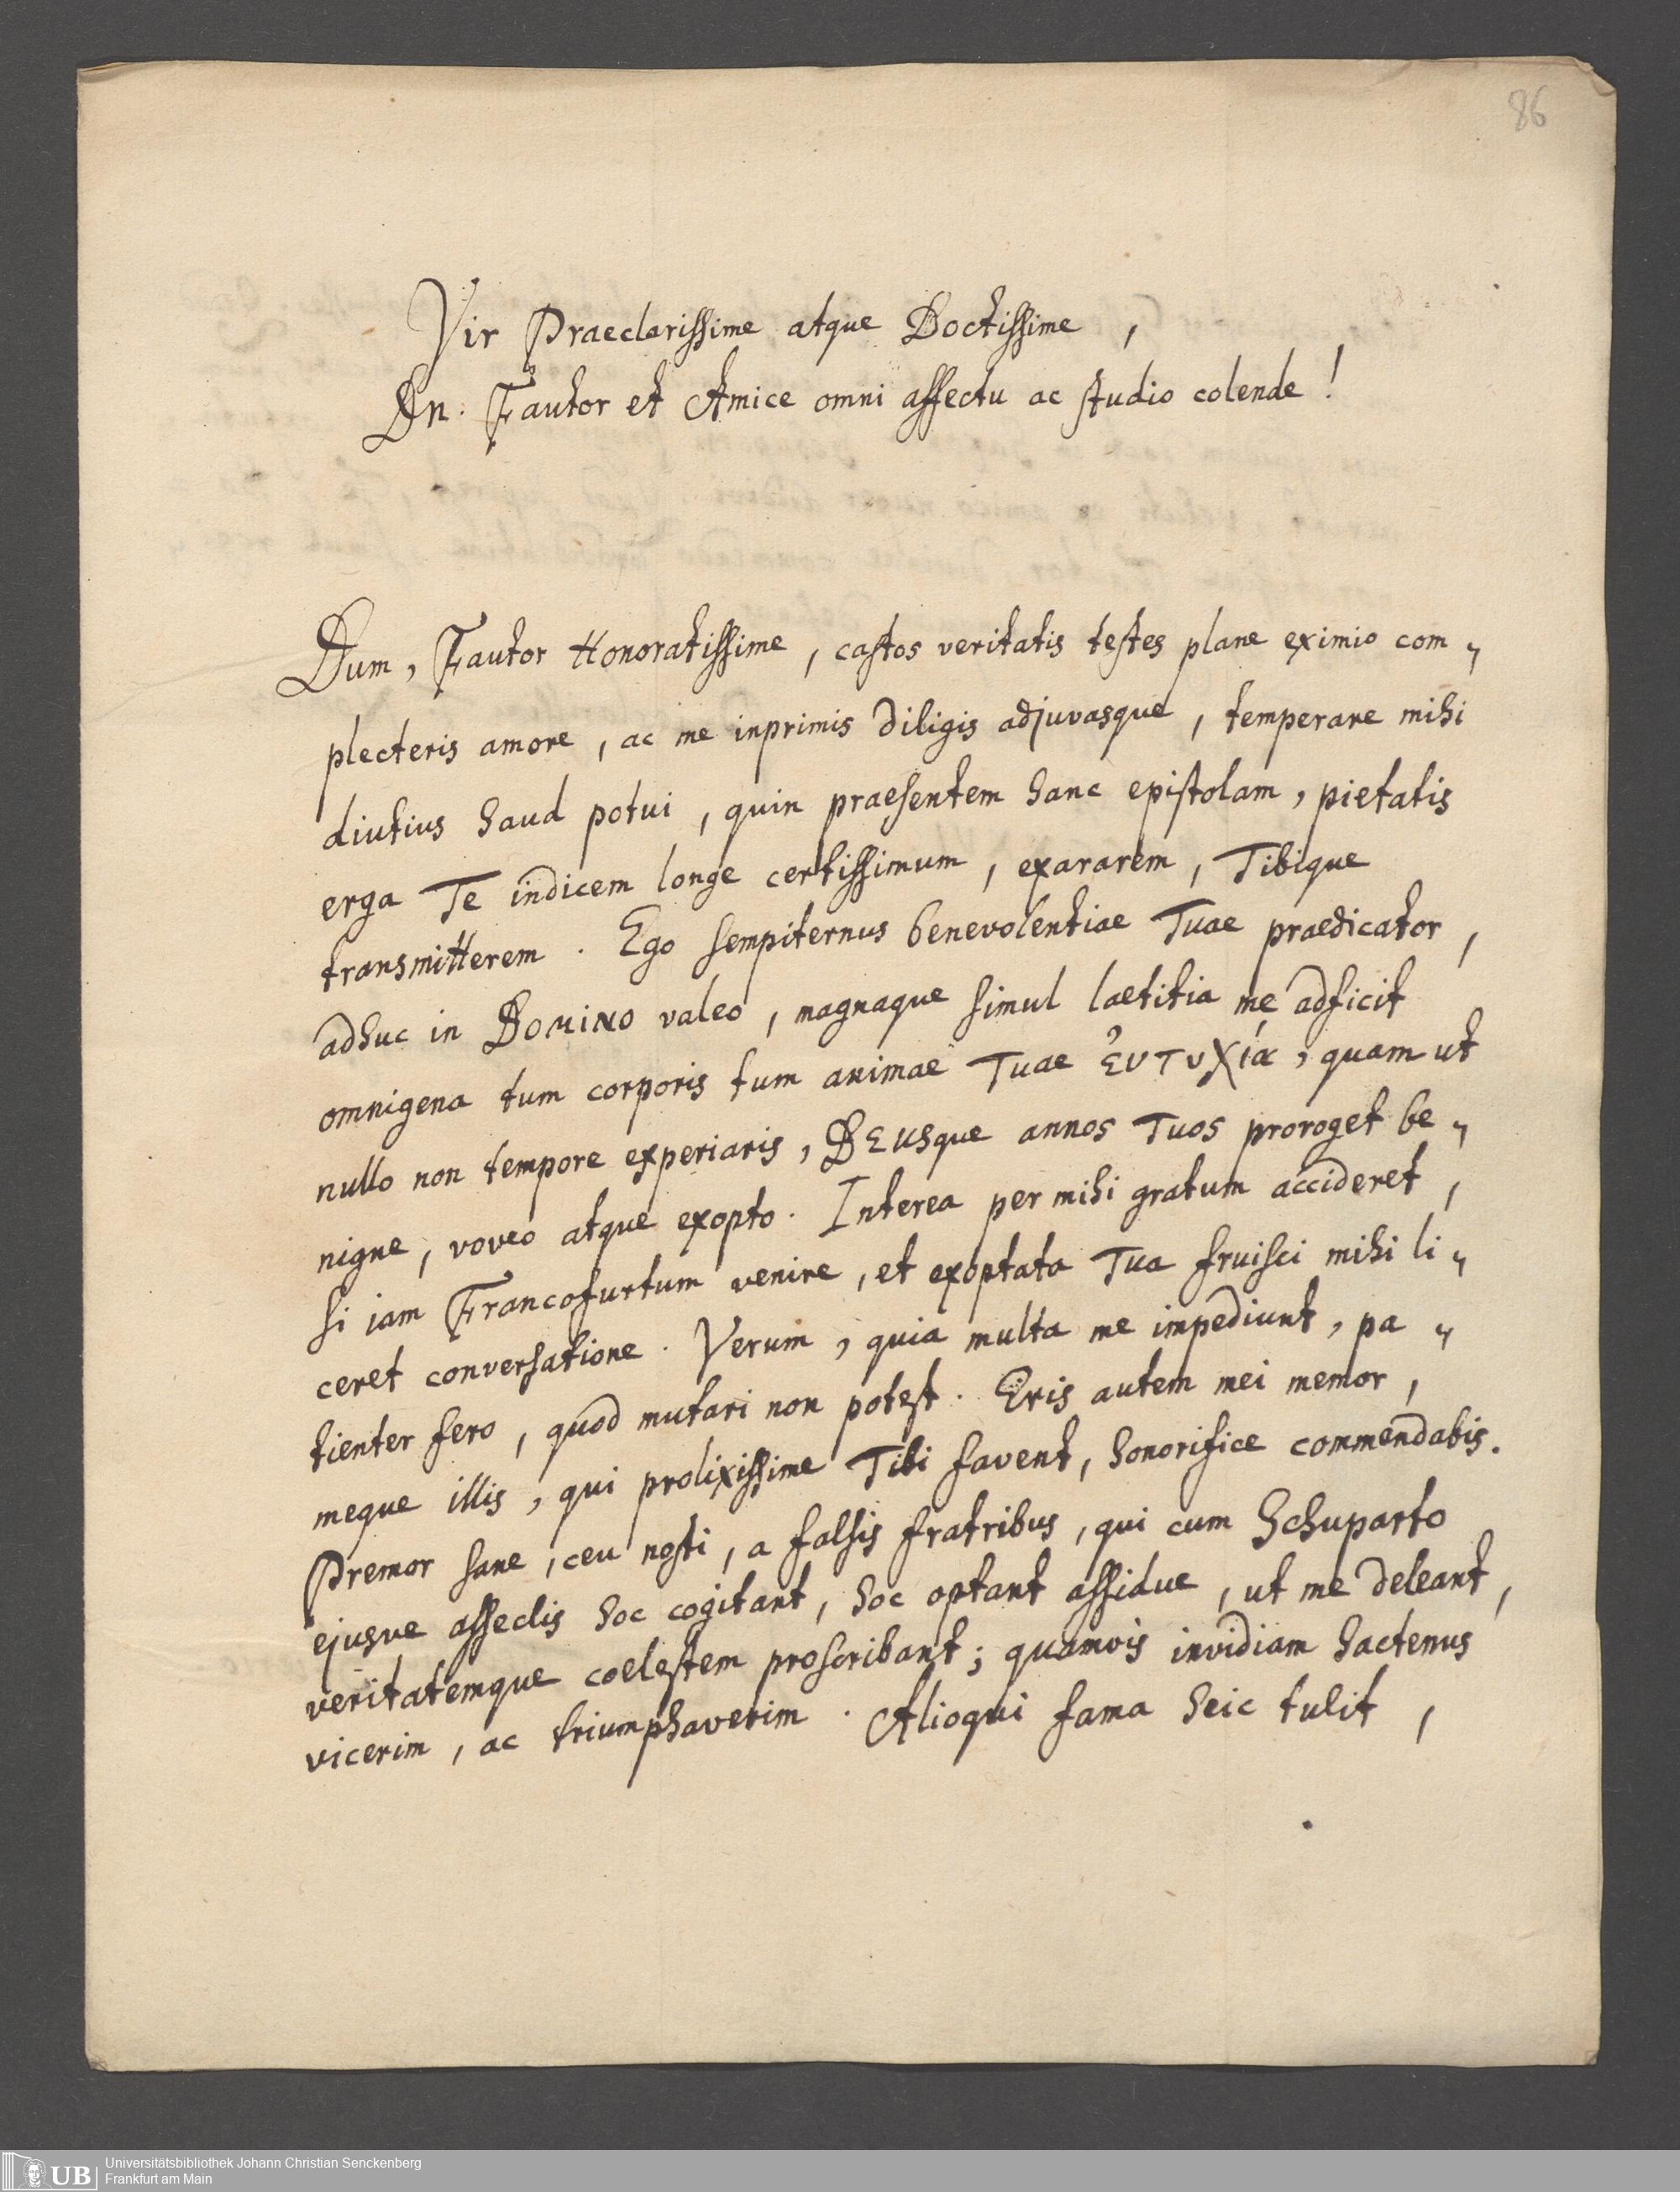 86
Vir Praeclarissime atque Doctissime,
Dn. Fautor et Amice omni affectu ac studio colende!
Dum, Fautor Honoratissime, castos veritatis testes plane eximio com„
plecteris amore, ac me inprimis diligis adjuvasque, temperare mihi
diutius haud potui, quin praesentem hanc epistolam, pietatis
erga Te indicem longe certissimum, exararem, Tibique
transmitterem. Ego sempiternus benevolentiae Tuae praedicator,
adhuc in DOMINO valeo, magnaque simul laetitia me adficit
omnigena tum corporis tum animae Tuae ἐυτυχία, quam ut
nullo non tempore experiaris, DEUSque annos Tuos proroget be„
nigne, voveo atque exopto. Interea per mihi gratum accideret,
si iam Francofurtum venire, et exoptata Tua fruisci mihi li„
ceret conversatione. Verum, quia multa me impediunt, pa„
tienter fero, quod mutari non potest. Eris autem mei memor,
meque illis, qui prolixissime Tibi favent, honorifice commendabis.
Premor sane, ceu nosti, a falsis fratribus, qui cum Schuparto
ejusve asseclis hoc cogitant, hoc optant assidue, ut me deleant,
veritatemque coelestem proscribant; quamvis invidiam hactenus
vicerim, ac triumphaverim. Alioqui fama heic tulit,
UB
Universitätsbibliothek Johann Christian Senckenberg
Frankfurt am Main